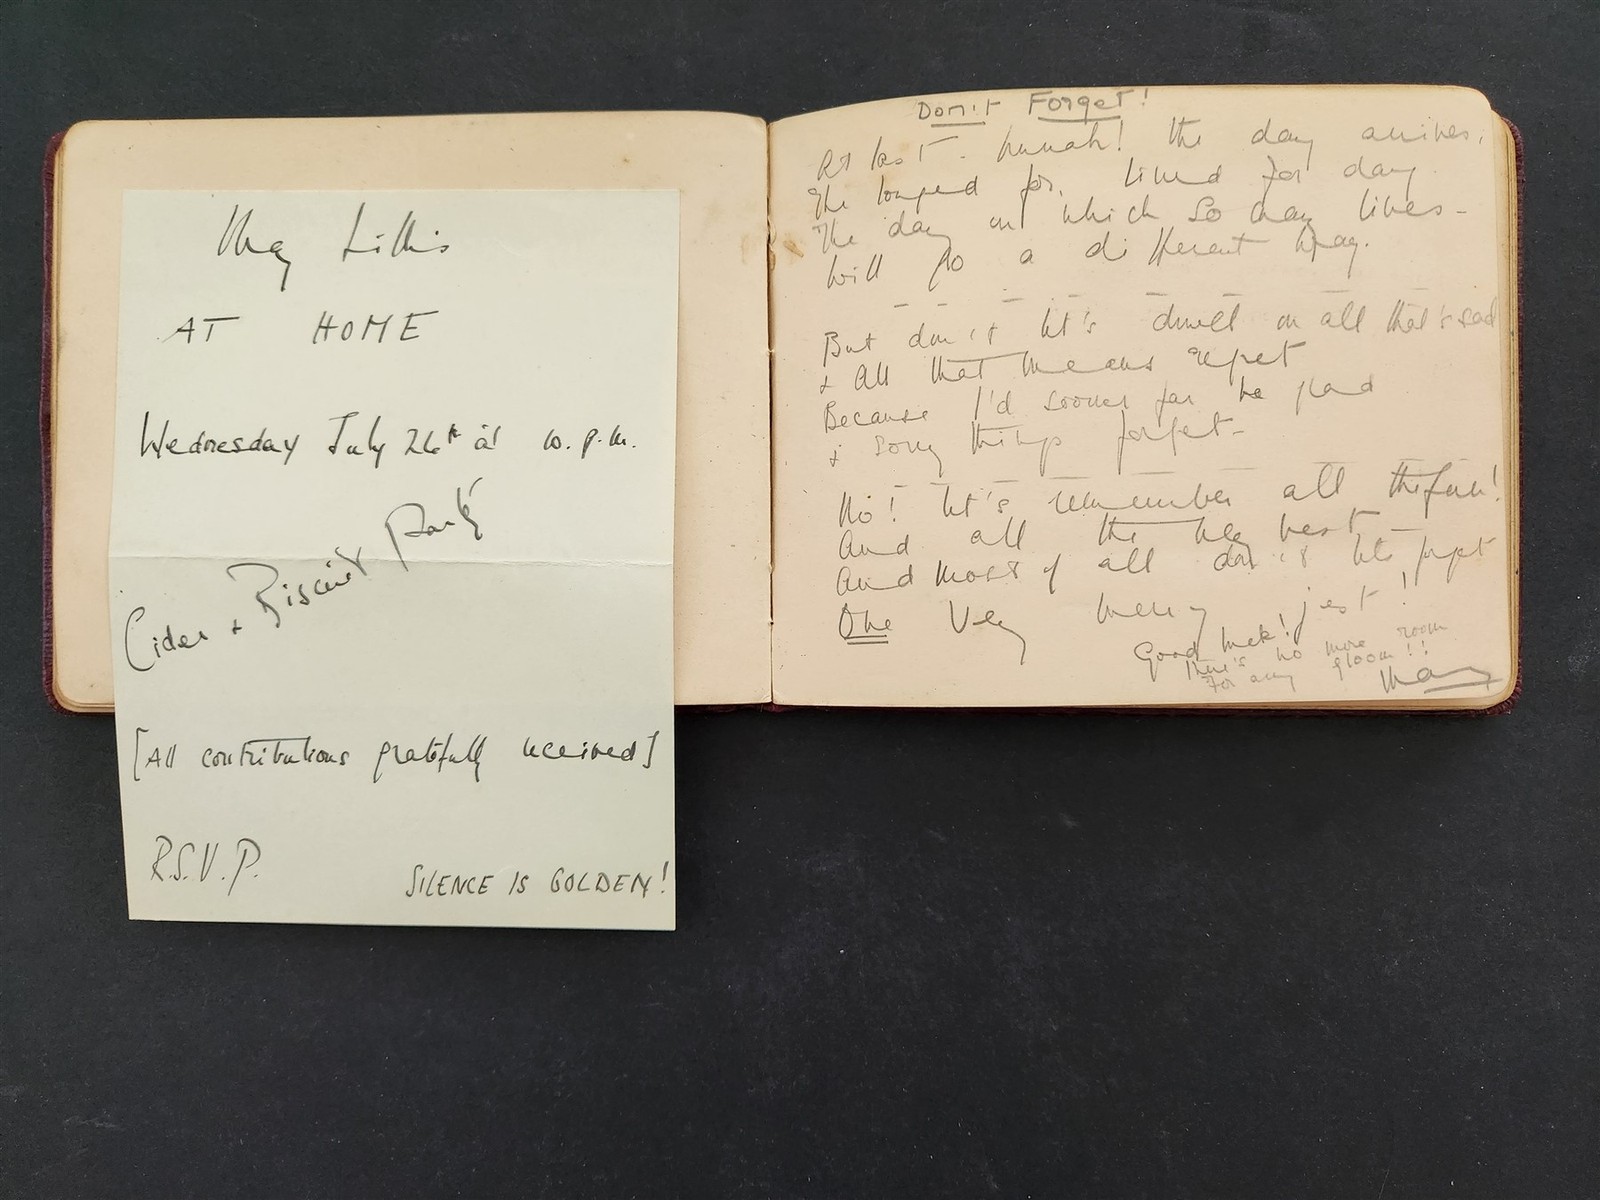 May Lillis
AT HOME
Wednesday July 26th at 10. p.m.
Cider + Biscuit Party
[All contributions gratefully received]
R.S.V.P.
SILENCE IS GOLDEN!
Don't Forget!
At last - hurrah! the day arrives,
The longed for, lived for day
The day on which so many lives -
Will go a different way.
But don't let's dwell on all that's sad
+ all that means regret
Because I'd sooner far be glad
+ sorry things forget -
No! let's remember all the fun!
And all the very best -
And most of all don't let's forget
One Very merry jest!
Good luck!
There's no more room
For any gloom!!
May